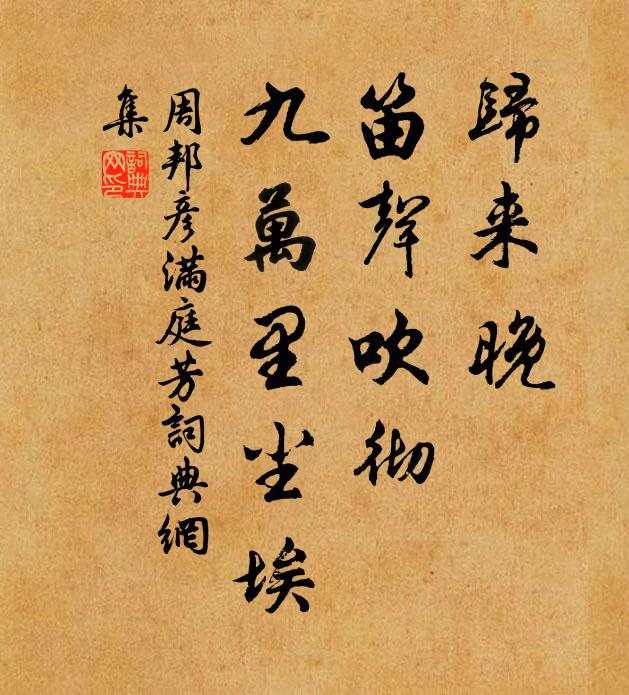 歸来晚
笛聲吹彻
九萬里尘埃
周邦彥滿庭芳詞典網
集
詞典
网印